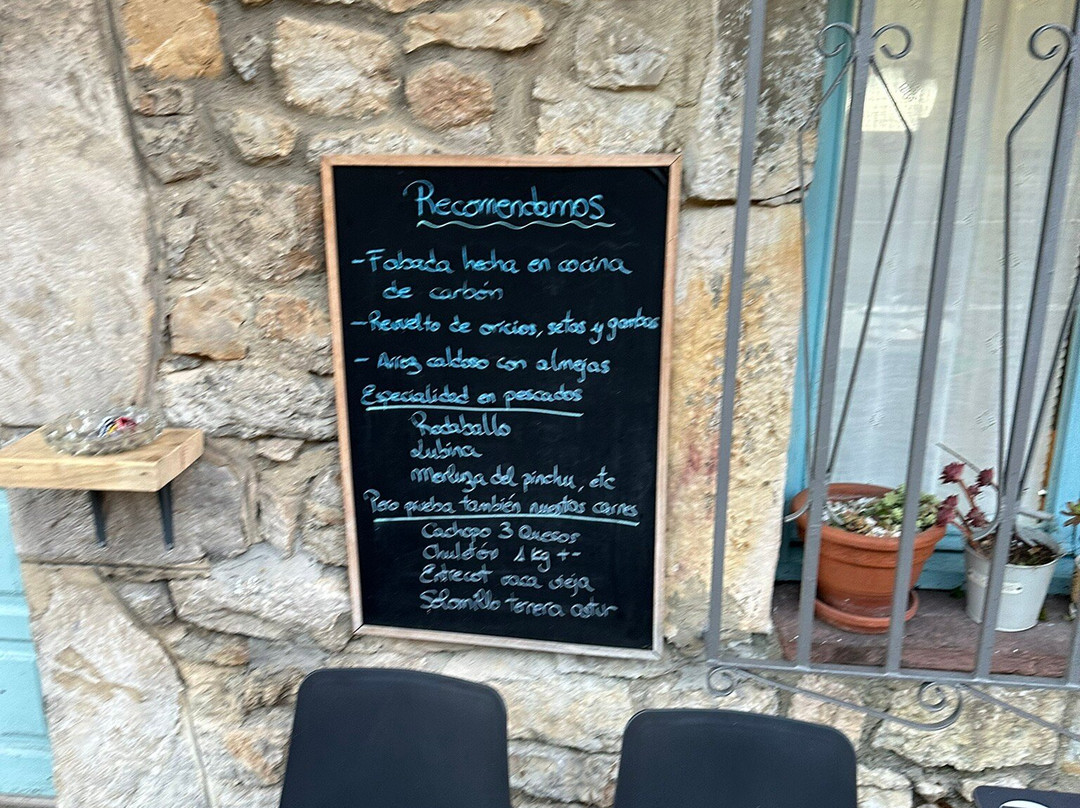 Recomendamos
- Fabada hecha en cocina
de carbón
- Revuelto de oricios, setas y gambas
- Arroz caldoso con almejas
Especialidad en pescados
Rodaballo
Lubina
Merluza del pinchu, etc
Pero prueba también nuestras carnes
Cachopo 3 Quesos
Chuletón 1 Kg +-
Entrecot vaca vieja
Solomillo ternera astur